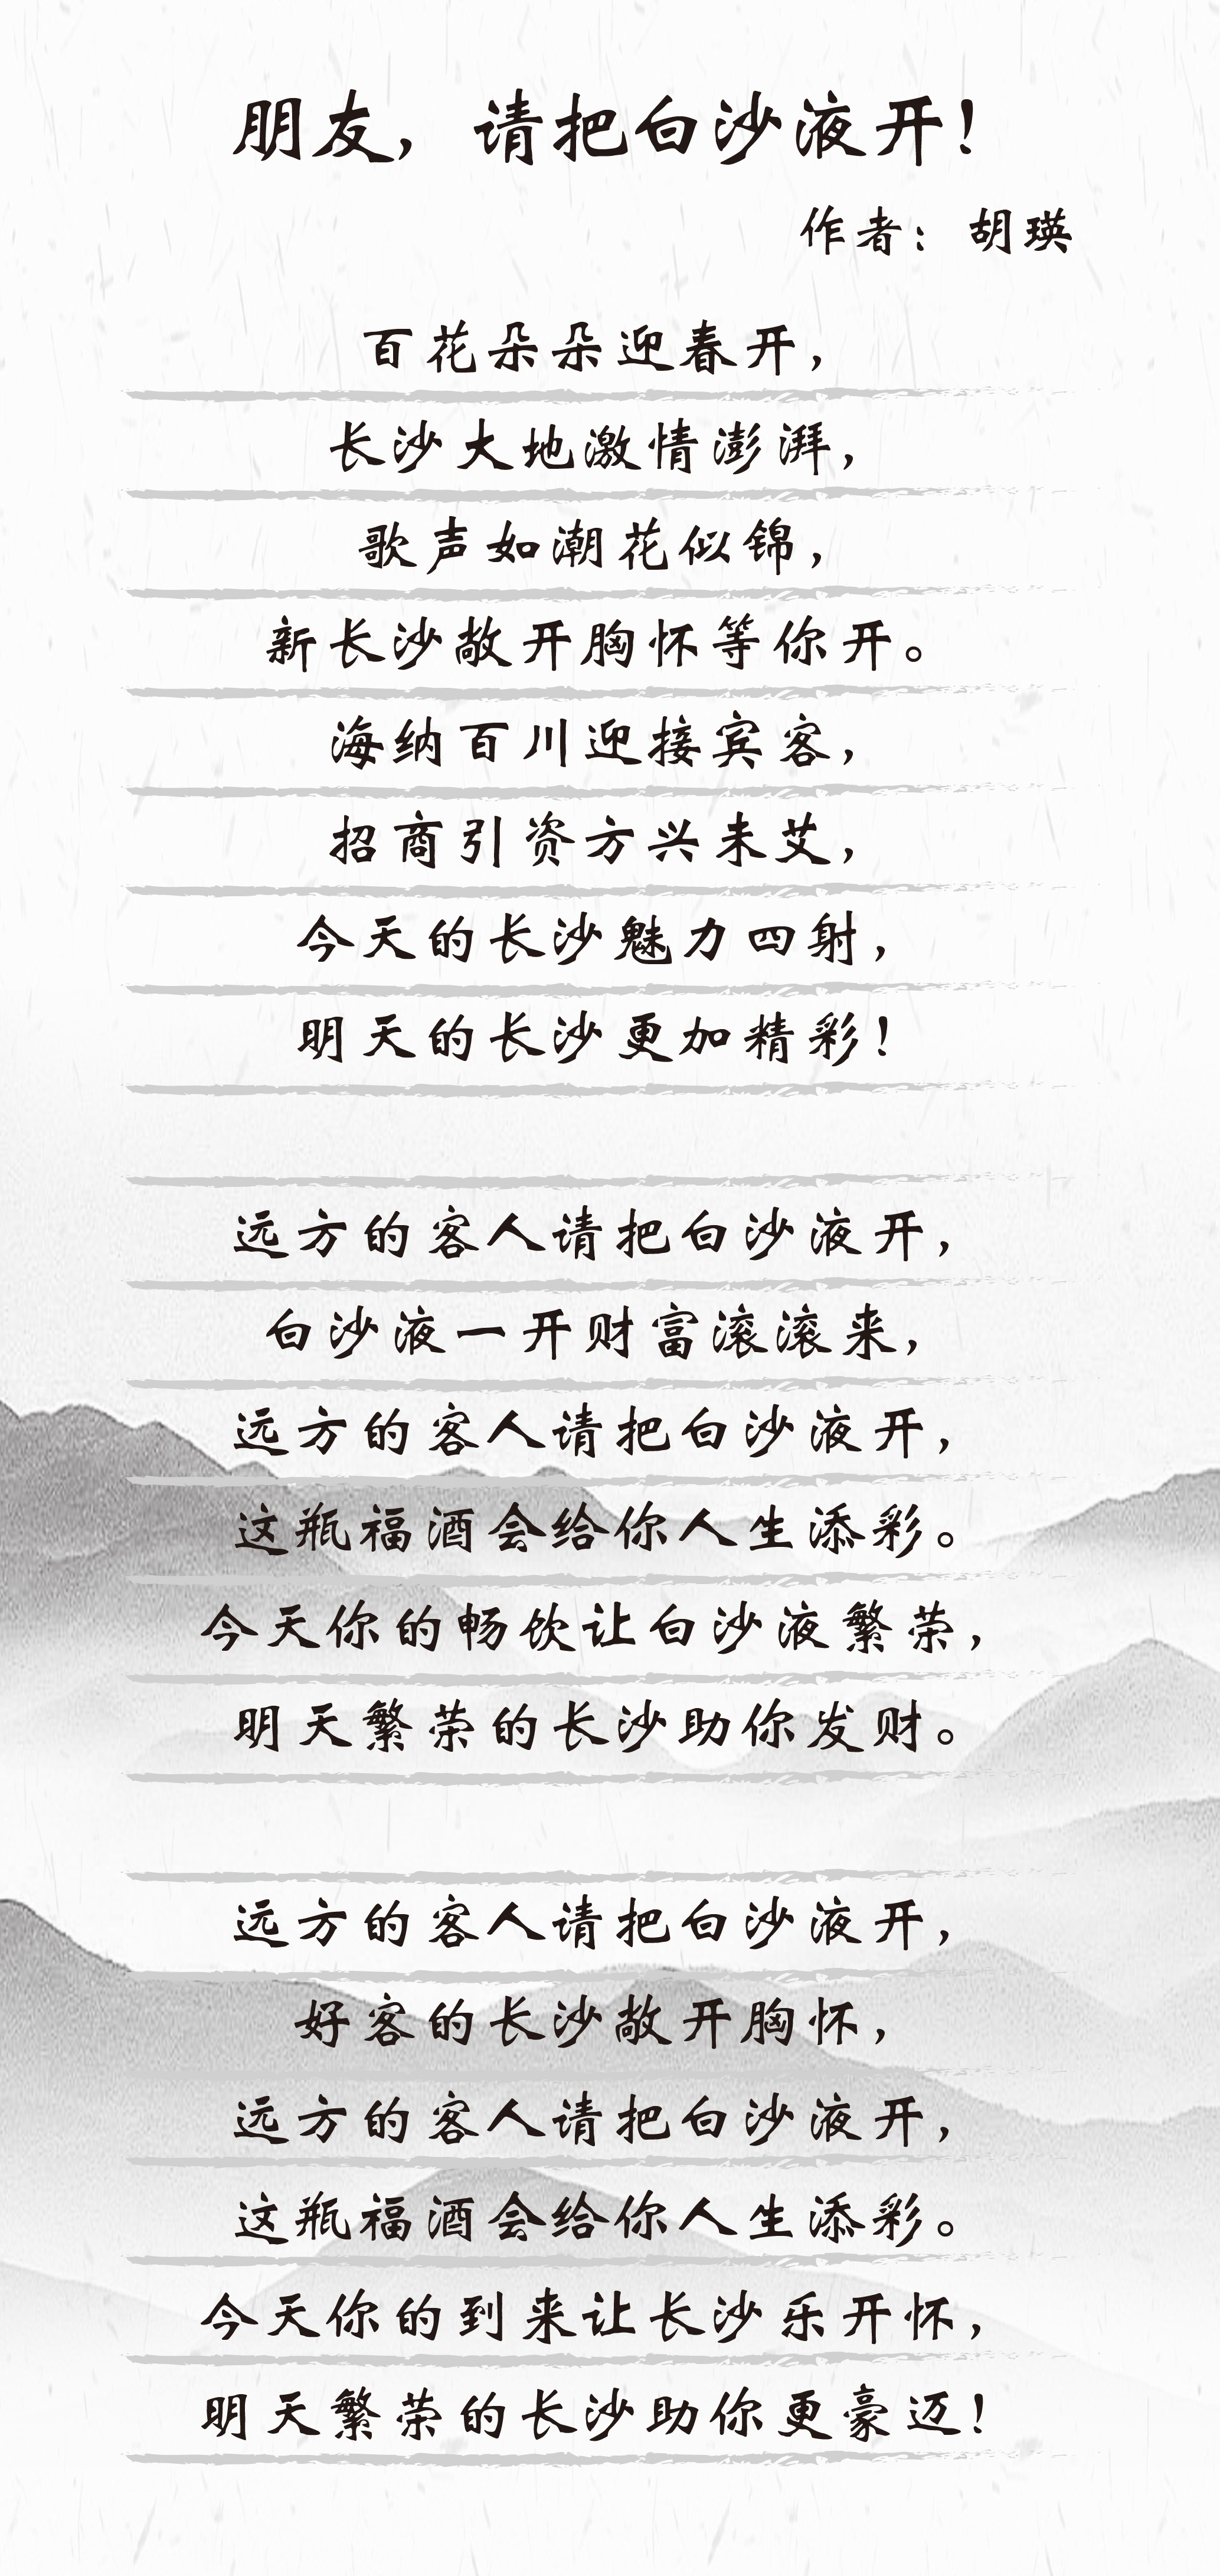 朋友，请把白沙液开！
作者：胡瑛
百花朵朵迎春开，
长沙大地激情澎湃，
歌声如潮花似锦，
新长沙敞开胸怀等你开。
海纳百川迎接宾客，
招商引资方兴未艾，
今天的长沙魅力四射，
明天的长沙更加精彩！
远方的客人请把白沙液开，
白沙液一开财富滚滚来，
远方的客人请把白沙液开，
这瓶福酒会给你人生添彩。
今天你的畅饮让白沙液繁荣，
明天繁荣的长沙助你发财。
远方的客人请把白沙液开，
好客的长沙敞开胸怀，
远方的客人请把白沙液开，
这瓶福酒会给你人生添彩。
今天你的到来让长沙乐开怀，
明天繁荣的长沙助你更豪迈！